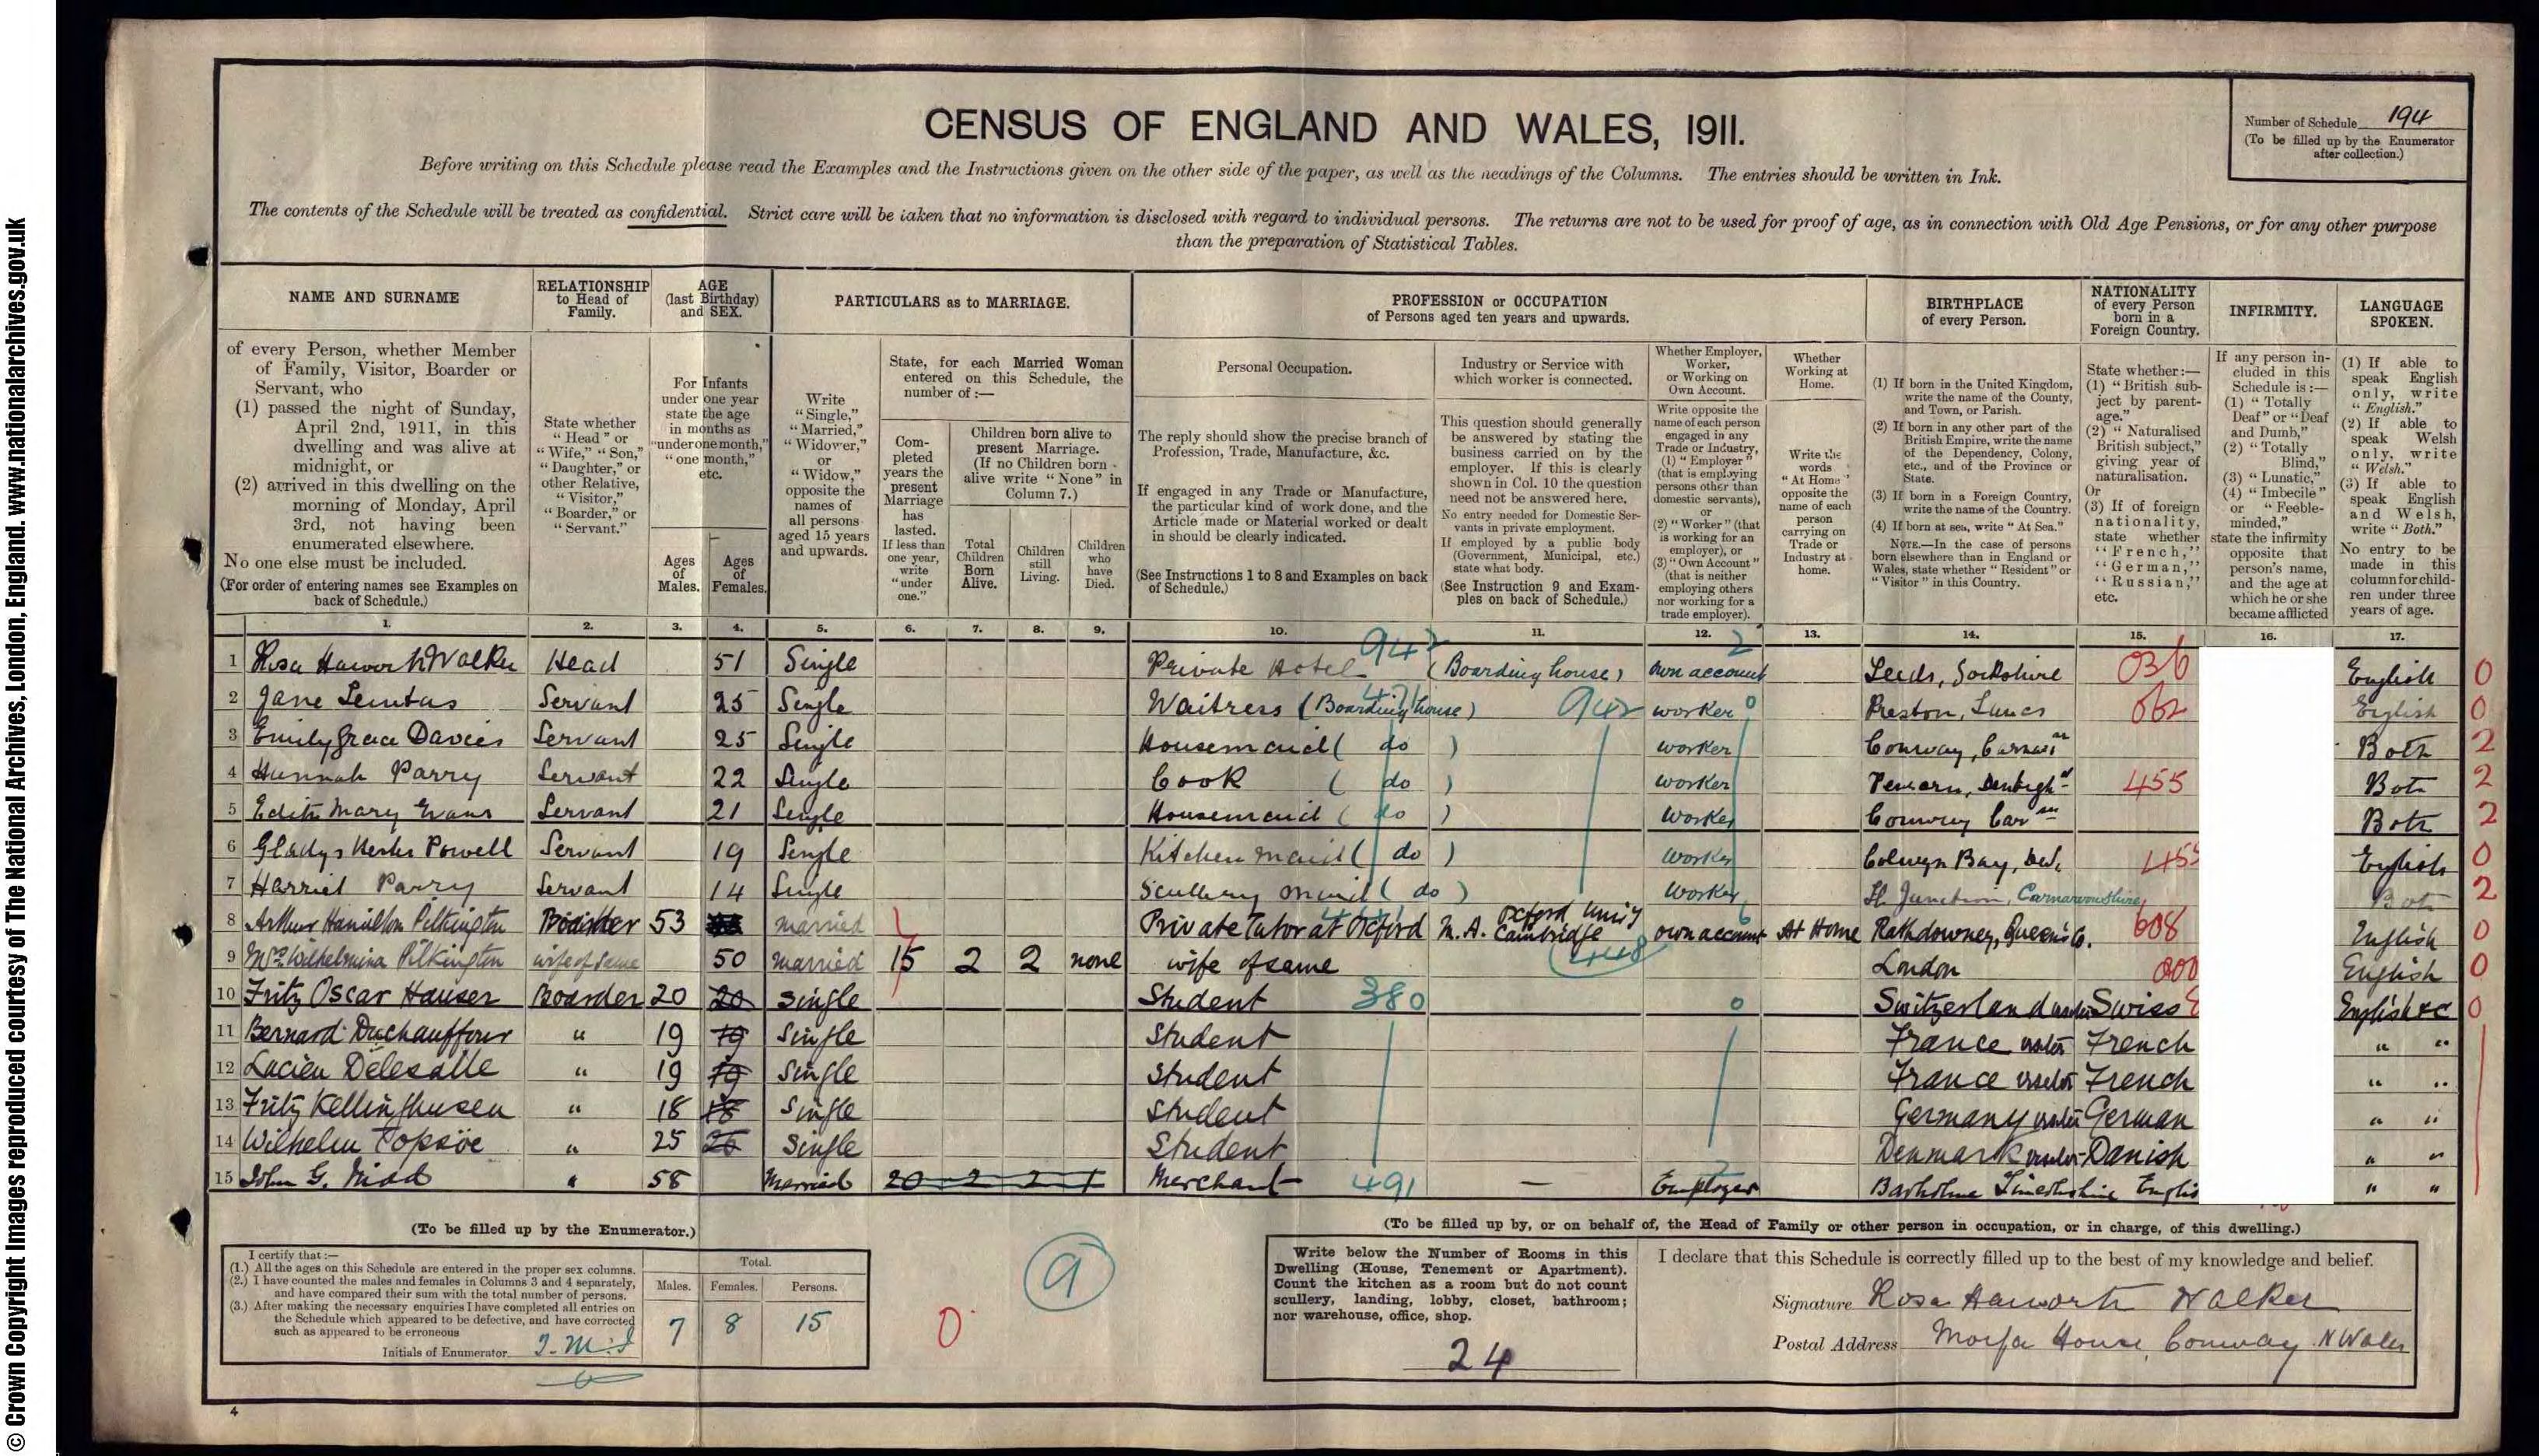 © Crown Copyright Images reproduced courtesy of The National Archives, London, England. www.nationalarchives.gov.uk
CENSUS OF ENGLAND AND WALES, 1911.
Number of Schedule 194
(To be filled up by the Enumerator after collection.)
Before writing on this Schedule please read the Examples and the Instructions given on the other side of the paper, as well as the headings of the Columns. The entries should be written in Ink.
The contents of the Schedule will be treated as confidential. Strict care will be taken that no information is disclosed with regard to individual persons. The returns are not to be used for proof of age, as in connection with Old Age Pensions, or for any other purpose
than the preparation of Statistical Tables.
NAME AND SURNAME
of every Person, whether Member
of Family, Visitor, Boarder or
Servant, who
(1) passed the night of Sunday,
April 2nd, 1911, in this
dwelling and was alive at
midnight, or
(2) arrived in this dwelling on the
morning of Monday, April
3rd, not having been
enumerated elsewhere.
No one else must be included.
(For order of entering names see Examples on
back of Schedule.)
RELATIONSHIP
to Head of
Family.
State whether
"Head" or
"Wife," "Son,"
"Daughter," or
other Relative,
"Visitor,"
"Boarder," or
"Servant."
AGE
(last Birthday)
and SEX.
For Infants
under one year
state the age
in months as
"under one month,"
"one month,"
etc.
Ages
of
Males.
Ages
of
Females.
PARTICULARS as to MARRIAGE.
Write
"Single,"
"Married,"
"Widower,"
or
"Widow,"
opposite the
names of
all persons
aged 15 years
and upwards.
State, for each Married Woman
entered on this Schedule, the
number of :—
Com-
pleted
years the
present
Marriage
has
lasted.
If less than
one year,
write
"under
one."
Children born alive to
present Marriage.
(If no Children born
alive write "None" in
Column 7.)
Total
Children
Born
Alive.
Children
still
Living.
Children
who
have
Died.
PROFESSION or OCCUPATION
of Persons aged ten years and upwards.
Personal Occupation.
The reply should show the precise branch of
Profession, Trade, Manufacture, &c.
If engaged in any Trade or Manufacture,
the particular kind of work done, and the
Article made or Material worked or dealt
in should be clearly indicated.
(See Instructions 1 to 8 and Examples on back
of Schedule.)
Industry or Service with
which worker is connected.
This question should generally
be answered by stating the
business carried on by the
employer. If this is clearly
shown in Col. 10 the question
need not be answered here.
No entry needed for Domestic Ser-
vants in private employment.
If employed by a public body
(Government, Municipal, etc.)
state what body.
(See Instruction 9 and Exam-
ples on back of Schedule.)
Whether Employer,
Worker,
or Working on
Own Account.
Write opposite the
name of each person
engaged in any
Trade or Industry,
(1) "Employer"
(that is employing
persons other than
domestic servants),
or
(2) "Worker" (that
is working for an
employer), or
(3) "Own Account"
(that is neither
employing others
nor working for a
trade employer).
Whether
Working at
Home.
Write the
words
"At Home"
opposite the
name of each
person
carrying on
Trade or
Industry at
home.
BIRTHPLACE
of every Person.
(1) If born in the United Kingdom,
write the name of the County,
and Town, or Parish.
(2) If born in any other part of the
British Empire, write the name
of the Dependency, Colony,
etc., and of the Province or
State.
(3) If born in a Foreign Country,
write the name of the Country.
(4) If born at sea, write "At Sea."
NOTE.—In the case of persons
born elsewhere than in England or
Wales, state whether "Resident" or
"Visitor" in this Country.
NATIONALITY
of every Person
born in a
Foreign Country.
State whether:—
(1) "British sub-
ject by parent-
age."
(2) "Naturalised
British subject,"
giving year of
naturalisation.
Or
(3) If of foreign
nationality,
state whether
"French,"
"German,"
"Russian,"
etc.
INFIRMITY.
If any person in-
cluded in this
Schedule is:—
(1) "Totally
Deaf" or "Deaf
and Dumb,"
(2) "Totally
Blind,"
(3) "Lunatic,"
(4) "Imbecile"
or "Feeble-
minded,"
state the infirmity
opposite that
person's name,
and the age at
which he or she
became afflicted
LANGUAGE
SPOKEN.
(1) If able to
speak English
only, write
"English."
(2) If able to
speak Welsh
only, write
"Welsh."
(3) If able to
speak English
and Welsh,
write "Both."
No entry to be
made in this
column for child-
ren under three
years of age.
1. 2. 3. 4. 5. 6. 7. 8. 9. 10. 11. 12. 13. 14. 15. 16. 17.
1 Rosa Haworth Walker Head 51 Single Private Hotel 942 (Boarding house) own account 2 Leeds, Yorkshire 036 English 0
2 Jane Servant 25 Single Waitress (Boarding house) 942 worker 0 Preston, Lancs 062 English 0
3 Emily Grace Davies Servant 25 Single Housemaid ( do ) worker Conway, Both 2
4 Hannah Parry Servant 22 Single Cook ( do ) worker 455 Both 2
5 Edith Mary Evans Servant 21 Single Housemaid ( do ) worker Conway Both 2
6 Gladys Powell Servant 19 Single Kitchen maid ( do ) worker Colwyn Bay, 455 English 0
7 Harriet Parry Servant 14 Single Scullery maid ( do ) worker Ll. Junction, Carnarvonshire Both 2
8 Arthur Hamilton Pilkington Boarder 53 married Private Tutor at Oxford M.A. Oxford Univ Cambridge own account 6 At Home Rathdowney, Queen's Co. 608 English 0
9 Mrs Wilhelmina Pilkington wife of same 50 married 15 2 2 none wife of same 448 London 000 English 0
10 Fritz Oscar Hauser Boarder 20 20 Single Student 380 0 Switzerland visitor Swiss English &c 0
11 Bernard Duchauffour " 19 19 Single Student France visitor French " "
12 Lucien Delesalle " 19 19 Single Student France visitor French " "
13 Fritz Kellinghusen " 18 18 Single Student Germany visitor German " "
14 Wilhelm Topsöe " 25 Single Student Denmark visitor Danish " "
15 John G. " 58 Married 20 2 2 1 Merchant 491 — Employer Lincolnshire " "
(To be filled up by the Enumerator.)
I certify that :—
(1.) All the ages on this Schedule are entered in the proper sex columns.
(2.) I have counted the males and females in Columns 3 and 4 separately,
and have compared their sum with the total number of persons.
(3.) After making the necessary enquiries I have completed all entries on
the Schedule which appeared to be defective, and have corrected
such as appeared to be erroneous
Initials of Enumerator
Total.
Males. Females. Persons.
7 8 15
0
9
(To be filled up by, or on behalf of, the Head of Family or other person in occupation, or in charge, of this dwelling.)
Write below the Number of Rooms in this
Dwelling (House, Tenement or Apartment).
Count the kitchen as a room but do not count
scullery, landing, lobby, closet, bathroom;
nor warehouse, office, shop.
24
I declare that this Schedule is correctly filled up to the best of my knowledge and belief.
Signature Rosa Haworth Walker
Postal Address Morfa House, Conway N Wales
4